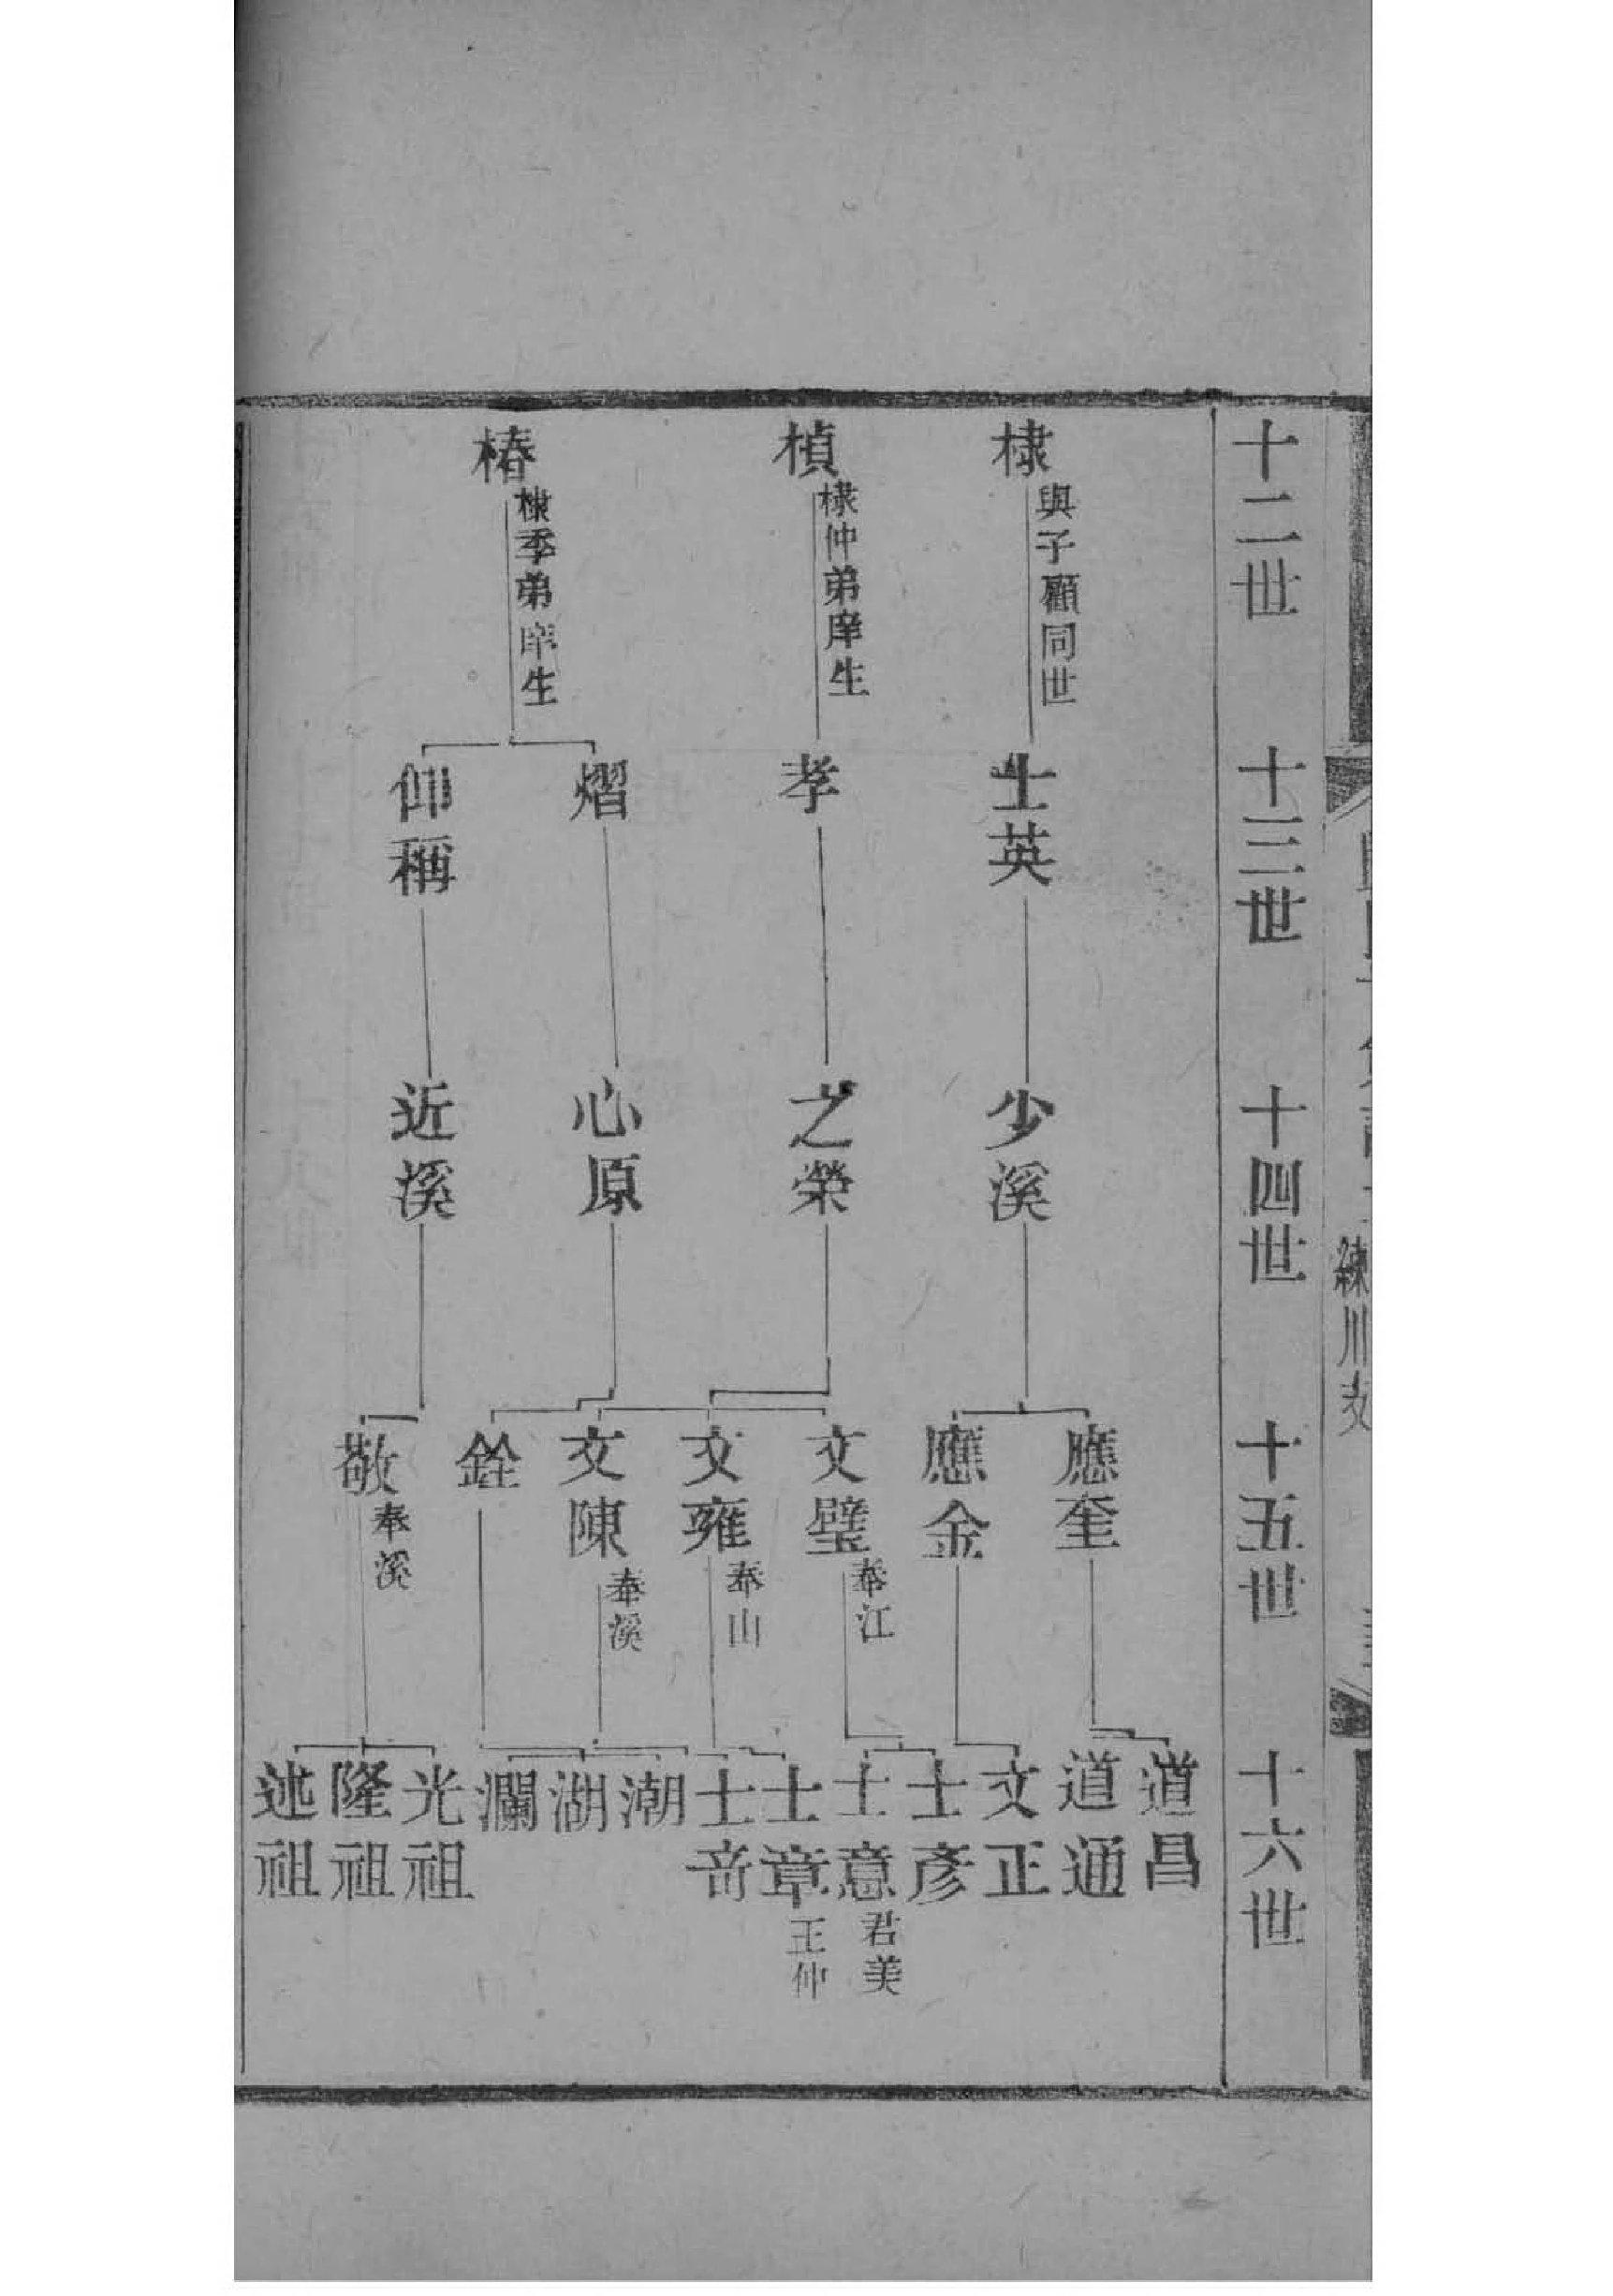 練川支
十二世
十三世
十四世
十五世
十六世
棣
與子顧同世
士英
少溪
應奎
道昌
道通
應金
文正
楨
棣仲弟庠生
孝
之榮
文璧
奉江
士彥
士意
君美
文雍
奉山
士章
王仲
士竒
文陳
奉溪
潮
湖
瀾
椿
棣季弟庠生
熠
心原
銓
仰稱
近溪
敬
奉溪
光祖
隆祖
述祖